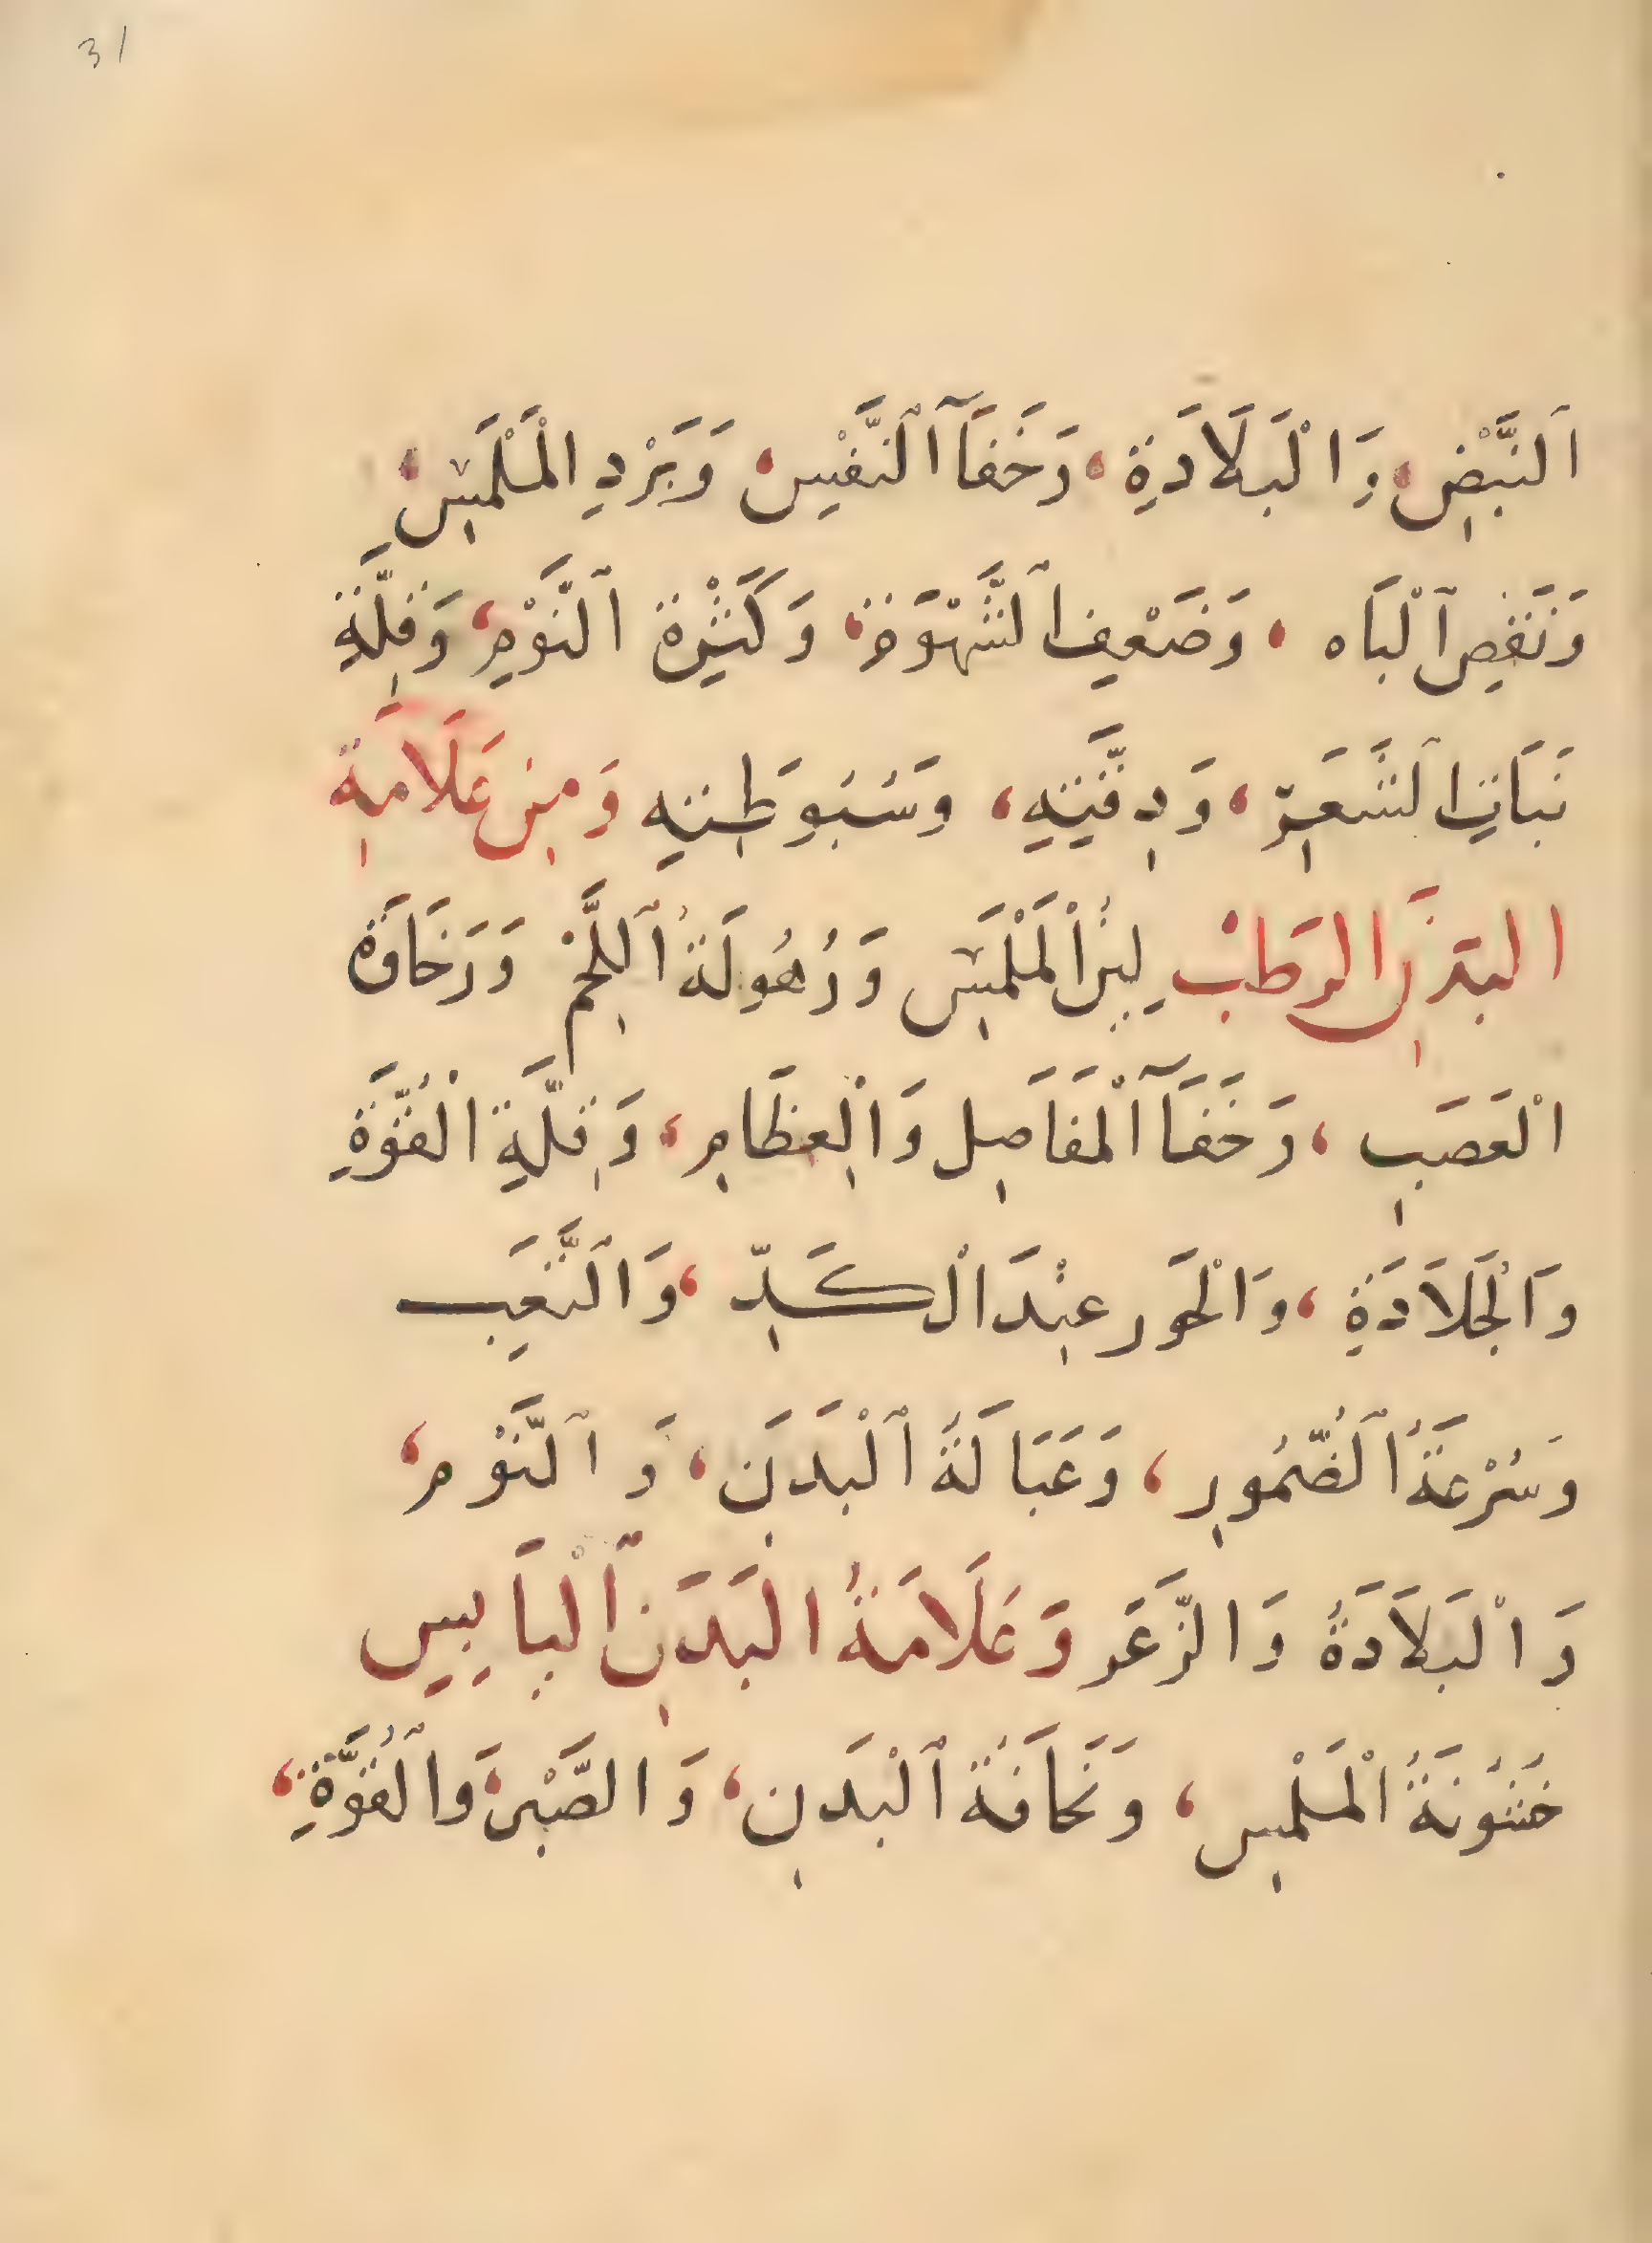 31
اَلنَّبْضِ، وَالْبَلَادَةِ، وَخَفَآ اَلنَّفْسِ، وَبَرْدِ الْمَلْمَسِ،
وَنَقْصِ اَلْبَاه ، وَضَعْفِ الشَّهْوَة، وَكَثْرَة النَّوْمِ، وَقِلَّةِ
نَبَاتِ الشَّعَرِ، وَدِقَّتِهِ، وَسُبُوطَتِهِ وَمِنْ عَلَامَةِ
البَدَنِ الرَطبْ لِينُ الْمَلْمَسِ وَرُهُولَةُ اللَّحْمِ وَرَخَاوَة
الْعَصَبِ ، وَخَفَآ الْمَفَاصِل وَالْعِظَامِ، وَقِلَّةِ الْقُوَّةِ
وَالْجَلَادَةِ، وَالْحَوَر عِنْدَ الْكَدِّ، وَالتَّعَبِ
وَسُرْعَةُ الضُّمُورِ، وَعَبَالَةُ اَلْبَدَنِ، وَالنَّوْم،
وَالْبَلَادَةُ وَالزَّعَر وَعَلَامَةُ البَدَنِ الْيَابِسِ
خُشُونَةُ الْمَلْمَسِ، وَنَحَافَةُ اَلْبَدَنِ، وَالصَّبْر، وَالْقُوَّةِ،